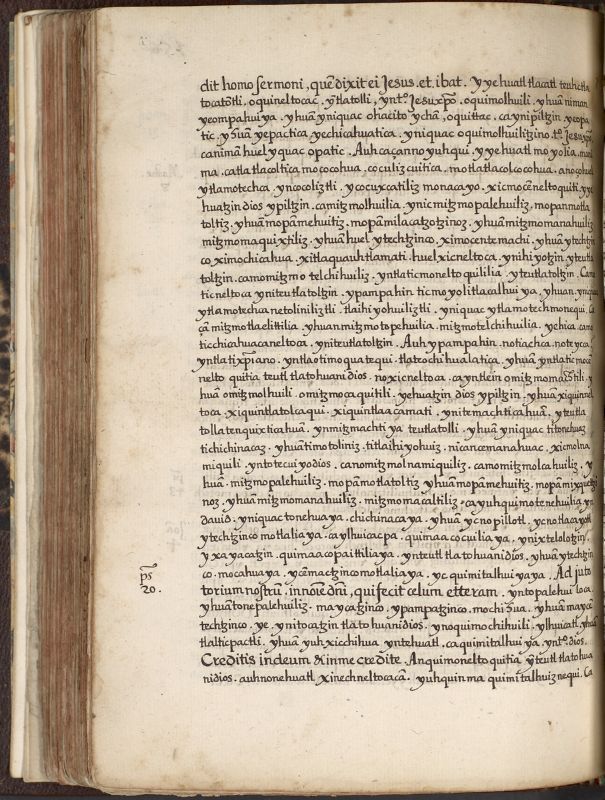 dit homo sermoni, quē dixit ei Jesus. et. ibat. Yyehuatl tlacatl teuhctla
tocatōtli. oquineltocac. ȳtlatolli, yntō Jesuxp̄o. oquimolhuili. yhuā niman
yeompahuiya. yhuā yniquac ohacito ychā, oquittac. caynipiltzin yeopa
tic. y yuā yepactica yechicahuatica. yniquac oquimolhuilitzino. tō Jesuxp̄o,
canimā huel yquac opatic. Auh caçanno yuhqui. yyehuatl mo yolia, 
ma. catla tlacoltica mococohua. cocolizcuitica. motlatlacolcocohua.
ytlamotechca. yncocoliztli. ycocuxcatiliz monacayo. xicmocēneltoquiti. yye
huatzin dios ypiltzin. camitzmolhuilia. ynicmitzmopalehuiliz. mopanmotla
toltiz. yhuā mopāmehuitiz. mopāmilacatzotzinoz. yhuā mitzmomanahuiliz
mitzmomaquixtiliz. yhuā huel ytechtzinco. ximocentemachi. yhuā ytechtzin
co, ximochicahua. xitlaquauhtlamati. huel xicneltoca. ynihiyotzin. yteutla
toltzin. camo mitzmo telchihuiliz. yntlaticmonelto quililia. yteutlatoltzin. Ca
ticneltoca yniteutlatoltzin. ypampahin ticmoyolitlacalhuiya, yhuan. yniquac
ytlamotechca netoliniliztli. tlaihiyohuiliztli. yniquac ytlamotechmonequi. Ca
çā mitzmotlaelittilia. yhuan mitzmotopehuilia. mitzmotelchihuilia. yehica. camo
ticchicahuacaneltoca. yniteutlatoltzin. Auh ypampahin. notiachca. noteycau.
yntlatixp̄iano. yntlaōtimoquatequi. tlateochihualatica. yhuā yntlaticmocē
nelto quitia teutl tlatohuani dios. noxicneltoca. cayntlein omitzmomachtili. y
huā omitzmolhuili. omitzmocaquitili. yehuatzin dios ypiltzin. yhuā xiquinnel
toca. xiquintlatolcaqui. xiquintlaaçamati. ynitemachticahuā. yteutla
tollatenquixticahuā. ynmitzmachtiya teutlatolli. yhuā yniquac titonehuaz
tichichinacaz. yhuā timotoliniz. titlaihiyohuiz. nican cemanahuac. xicmolna
miquili. ynto tecuiyo dios. camo mitzmolnamiquiliz. camo mitzmolcahuiliz. y
huā. mitzmopalehuiliz. mopāmotlatoltiz yhuā mopāmehuitiz. mopāmixquetzi
noz. yhuā mitzmomanahuiliz. mitzmomacaltiliz. cayuhquimotenehuilia yn
dauid. yniquac tonehuaya. chichinacaya. yhuā ycnopillotl. ycnotlacayotl
ytechtzinco motlaliaya. cayilhuicacpa. quimaacocuiliaya. ynixtelolotzin.
yxayacatzin. quimaacopaittiliaya. ynteutl tlatohuani dios, yhuā ytechtzin
co. mocahuaya. ycēmactzincomotlaliaya. yc quimitalhuiyaya. Ad juto
p̄s 20.
torium nostrū. innoīe dn̄i, qui fecit celum etterram. ynto palehuiloca.
yhuā tonepalehuiliz. maycatzinco. ypampatzinco. mochihua. yhuā maycā
techtzinco. ye. ynitocatzin tlatohuani dios. ynoquimochihuili. ylhuicatl, yhuā
tlalticpactli. yhuā yuh xicchihua yntehuatl. caquimitalhuiya. yntō. dios.
Creditis in deum & in me credite. An quimoneltoquitia yteutl tlatohua
nidios. auhnonehuatl xinechneltocacā. yuhquinma quimitalhuiznequi. Ca